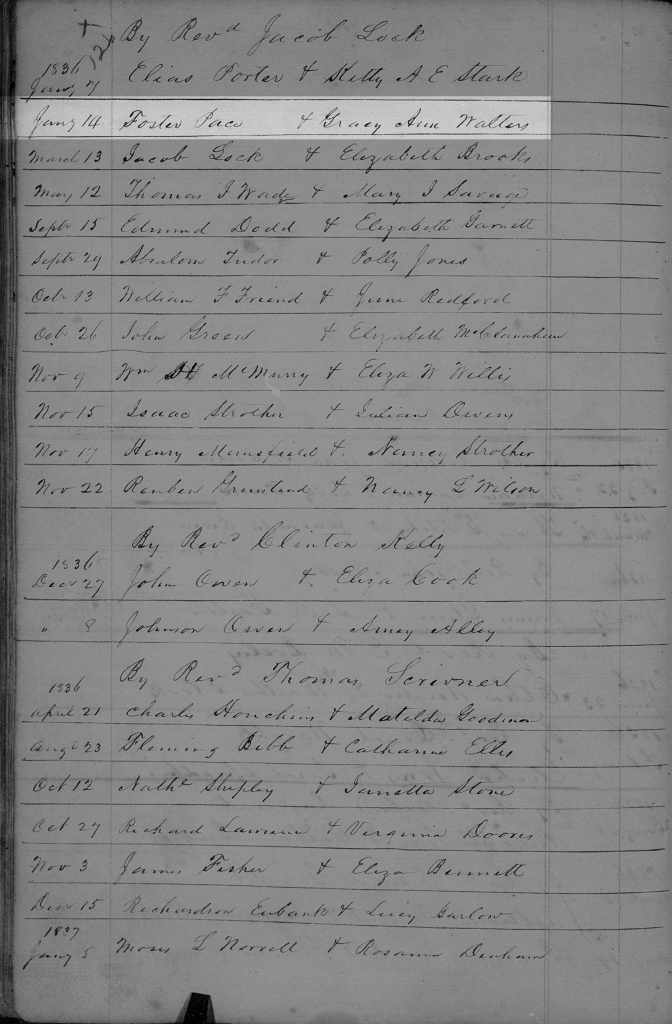 By Revd Jacob Lock
1836
Jany 7 Elias Porter & Kitty A E Stark
Jany 14 Foster Pace & Gracy Ann Walters
March 13 Jacob Lock & Elizabeth Brooks
May 12 Thomas J Wade & Mary J Savage
Septr 15 Edmund Dodd & Elizabeth Garnett
Septr 29 Absalom Tudor & Polly Jones
Oct 13 William F Friend & Jane Redford
Oct 26 John Green & Elizabeth McClanahan
Nov 9 Wm McMurry & Eliza W Willis
Nov 15 Isaac Strother & Julian Owens
Nov 17 Henry Mansfield & Nancy Strother
Nov 22 Reuben Grinstead & Nancy L Wilson
By Revd Clinton Kelly
1836
Decr 27 John Owen & Eliza Cook
" 8 Johnson Owen & Amey Alley
By Revd Thomas Scrivner
1836
April 21 Charles Houchins & Matilda Goodman
Augt 23 Fleming Bibb & Catharine Ellis
Oct 12 Nathl Shipley & Janetta Stone
Oct 27 Richard & Virginia
Nov 3 James Fisher & Eliza Bennett
Decr 15 Richardson Eubank & Lucy Garlow
1837
Jany 5 Moses L Norvell & Rosanna Denham